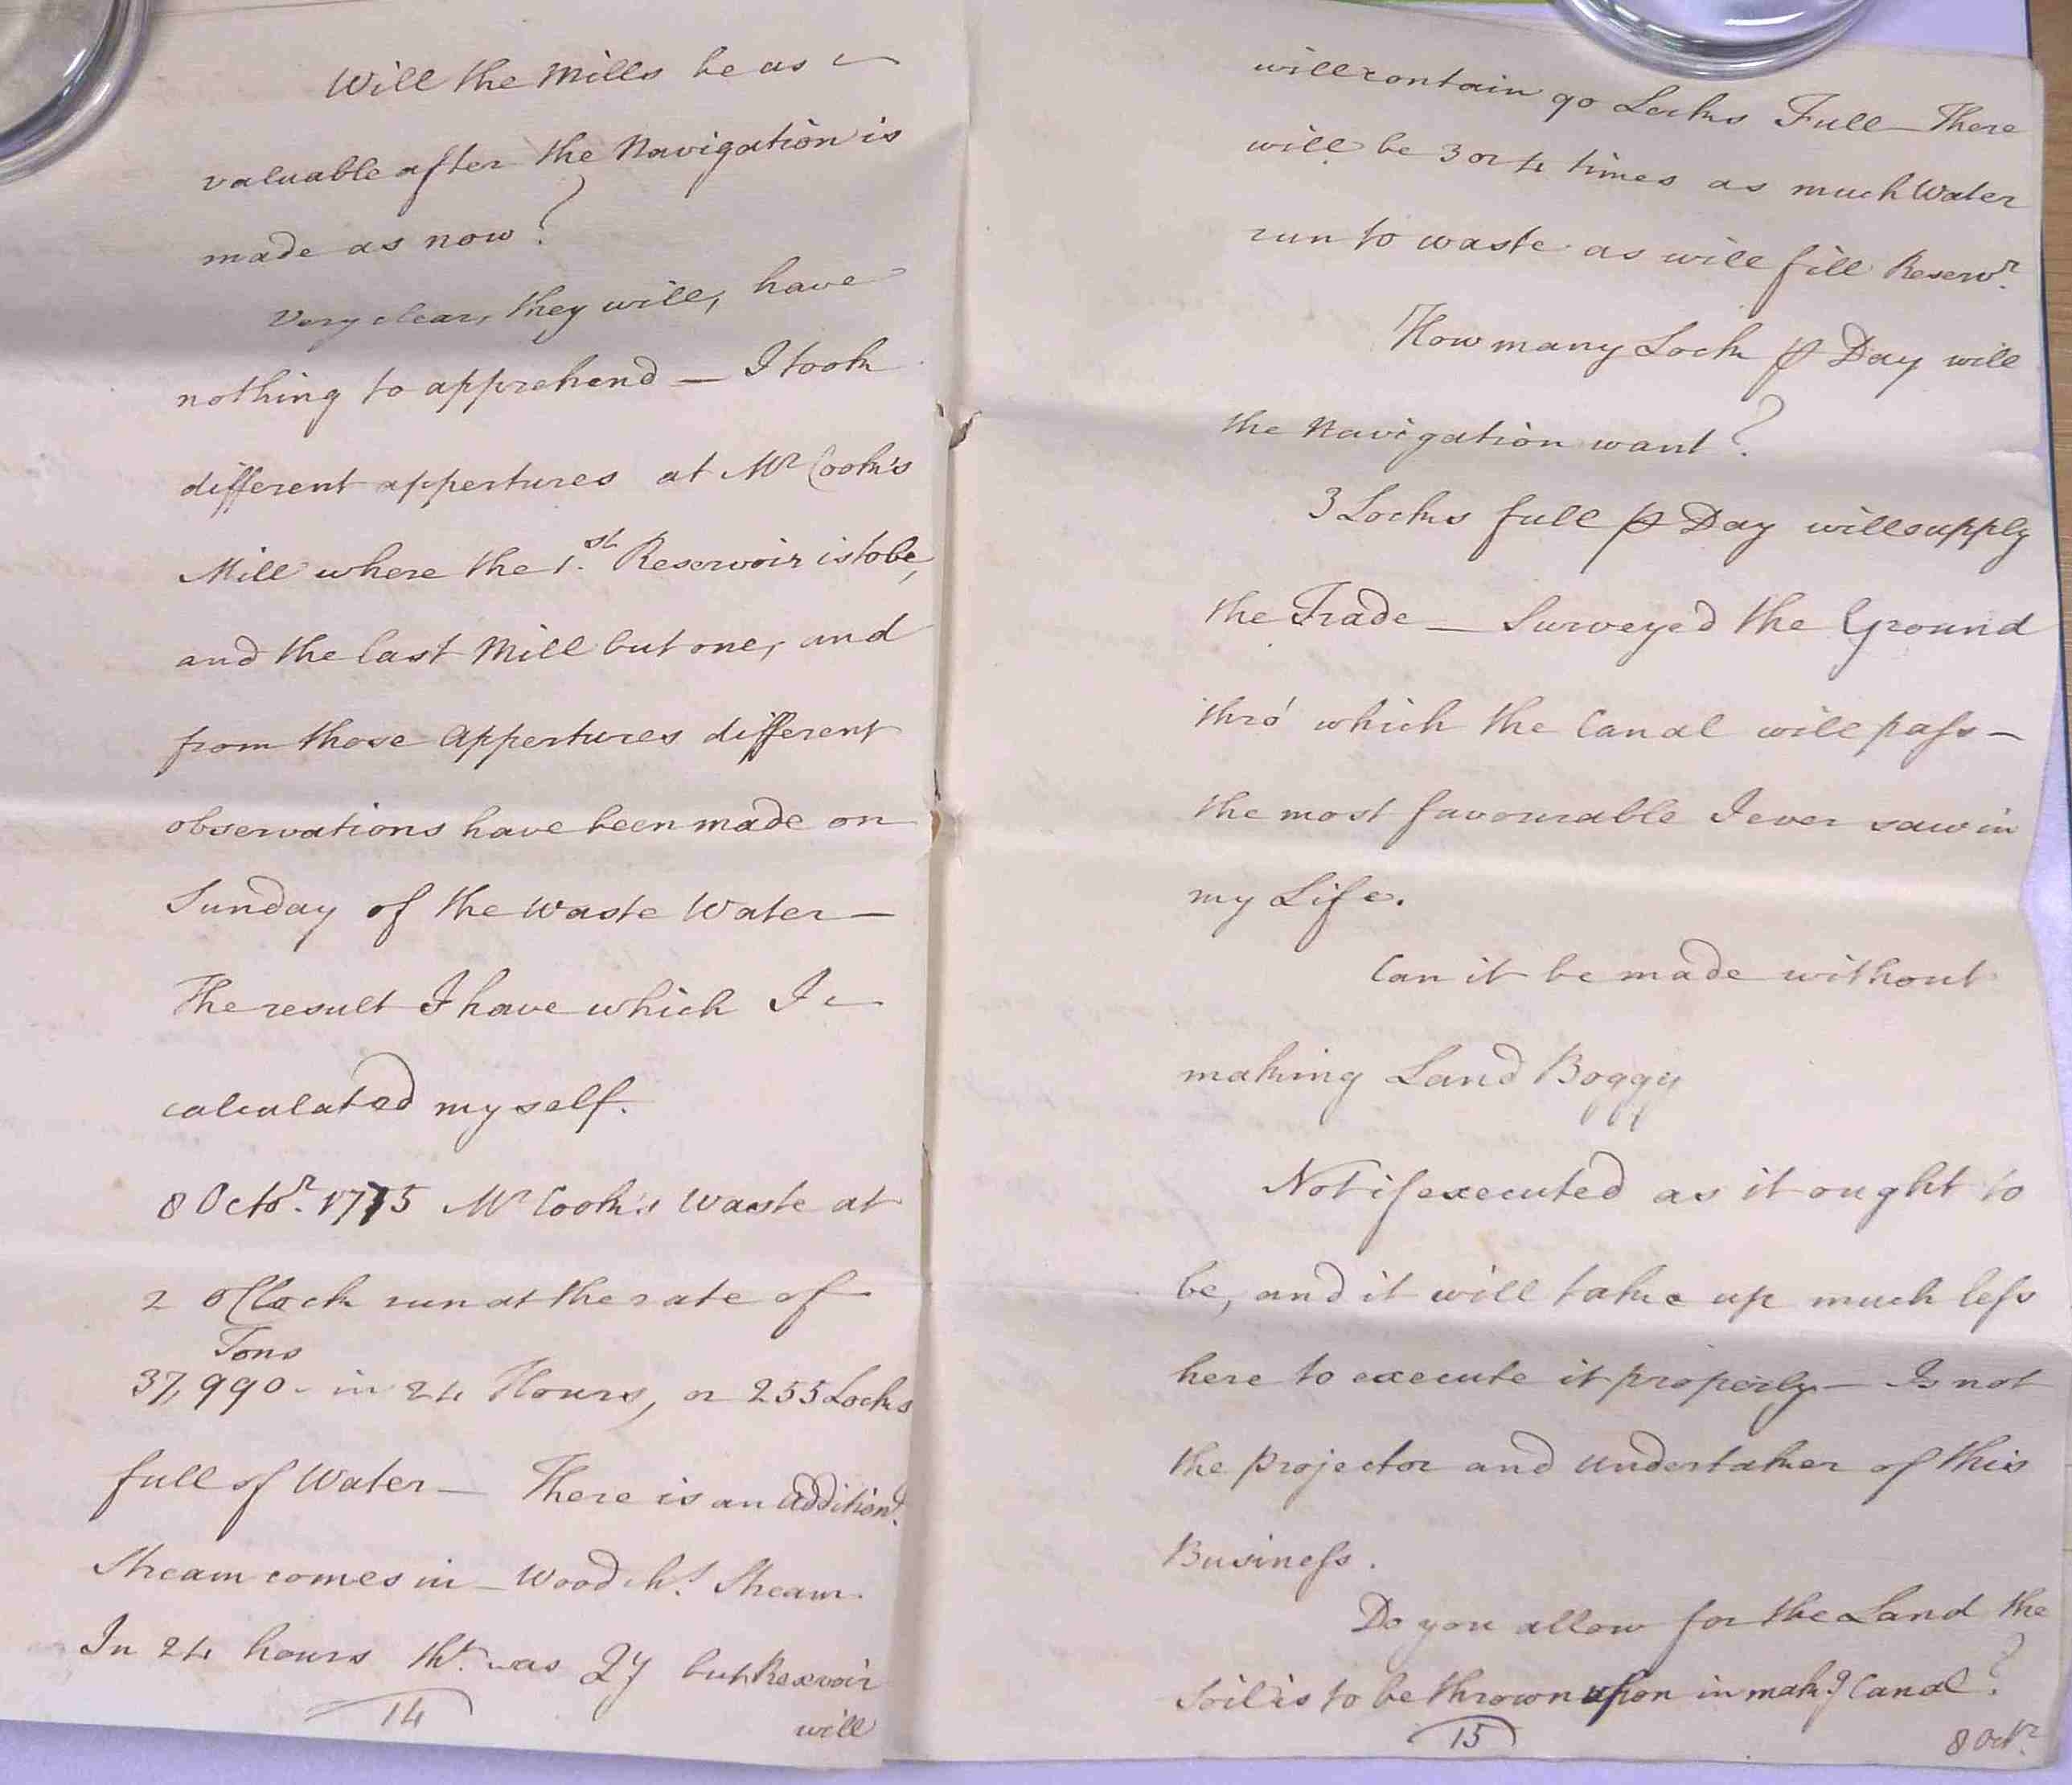 Will the Mills be as
valuable after the Navigation is
made as now?
Very clear, they will, have
nothing to apprehend — I took
different appertures at Mr Cook's
Mill where the 1st. Reservoir is to be,
and the last Mill but one, and
from those appertures different
observations have been made on
Sunday of the Waste Water —
The result I have which I
calculated myself.
8 Octor. 1775 Mr Cook's Waste at
2 oClock run at the rate of
Tons
37,990 - in 24 Hours, or 255 Locks
full of Water — There is an additionl.
Stream comes in — Stream.
In 24 hours thr. was 27 but Resvoir
14
will
will contain 90 Locks Full — There
will be 3 or 4 times as much Water
run to waste as will fill Reservr.
How many Lock ⅌ Day will
the Navigation want?
3 Locks full ⅌ Day will supply
the Trade — Surveyed the Ground
thro' which the Canal will paſs —
the most favourable I ever saw in
my Life.
Can it be made without
making Land Boggy
Not if executed as it ought to
be, and it will take up much leſs
here to execute it properly — Is not
the projector and undertaker of this
Buſineſs.
Do you allow for the Land the
Soil is to be thrown upon in makg. Canal?
15
8 Octr.